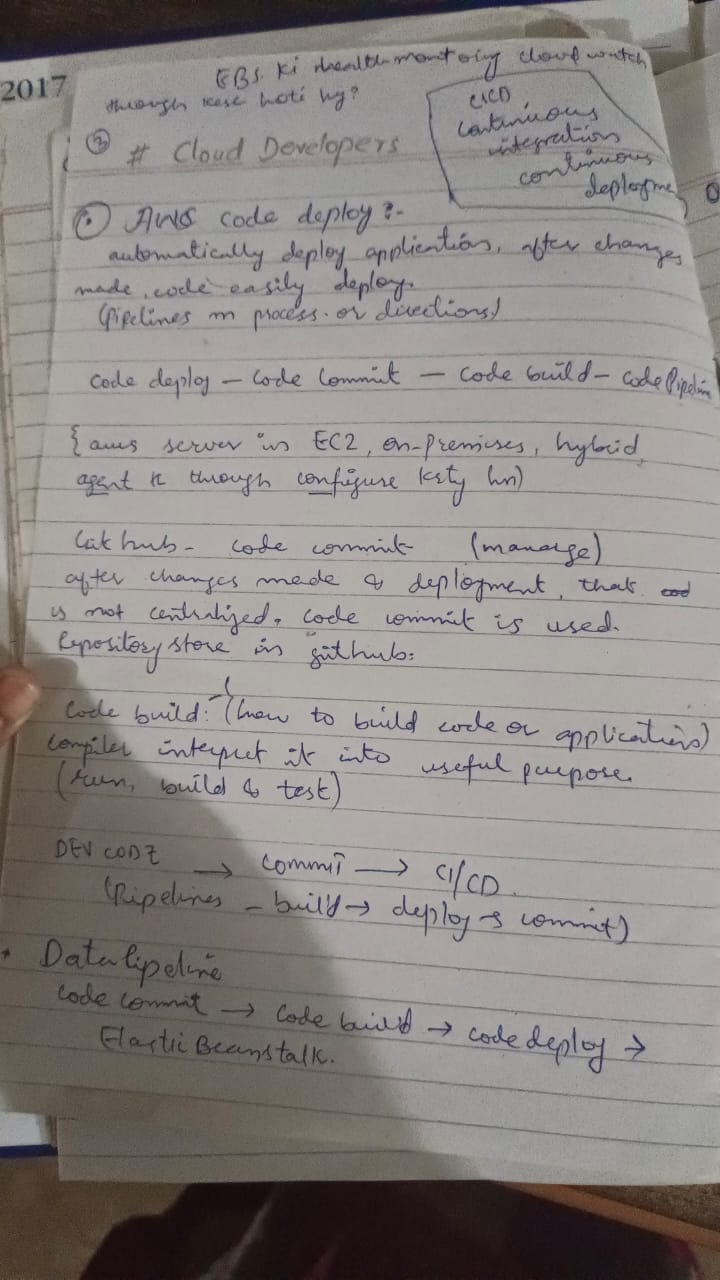 2017
EBS ki health monitoring cloud watch
through kese hoti hy?
CICD
continuous
integration
continuous
deployme
3
# Cloud Developers
AWS code deploy :-
automatically deploy application, after changes
made, code easily deploy.
(pipelines m process or directions)
code deploy - code commit - code build - code Pipeline
{ aws server in EC2, on-premises, hybrid,
agent k through configure krty hn)
Git hub - code commit (manage)
after changes made & deployment, that
is not centralized, code commit is used.
Repository store in github.
code build: (how to build code or applications)
compiler interpret it into useful purpose.
(run, build & test)
DEV CODE → commit → CI/CD.
(Pipelines - build → deploy → commit)
* Data Pipeline
code commit → code build → code deploy →
Elastic Beanstalk.